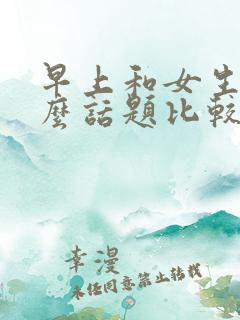 早上和女生
麼話題比較
李漫
未经同意禁止转载